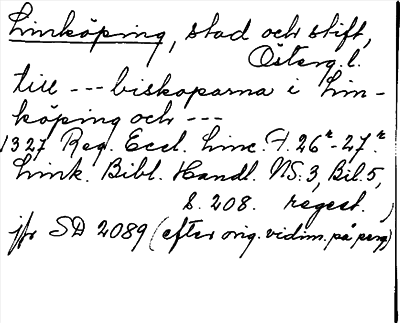 Linköping, stad och stift,
Österg. l.
till --- biskoparna i Lin-
köping och ---
1327 Reg. Eccl. Linc. f. 26r-27r.
Link. Bibl. Handl. NS. 3, Bil. 5,
s. 208. regest.
jfr SD 2089 (efter orig. vidim. på perg)